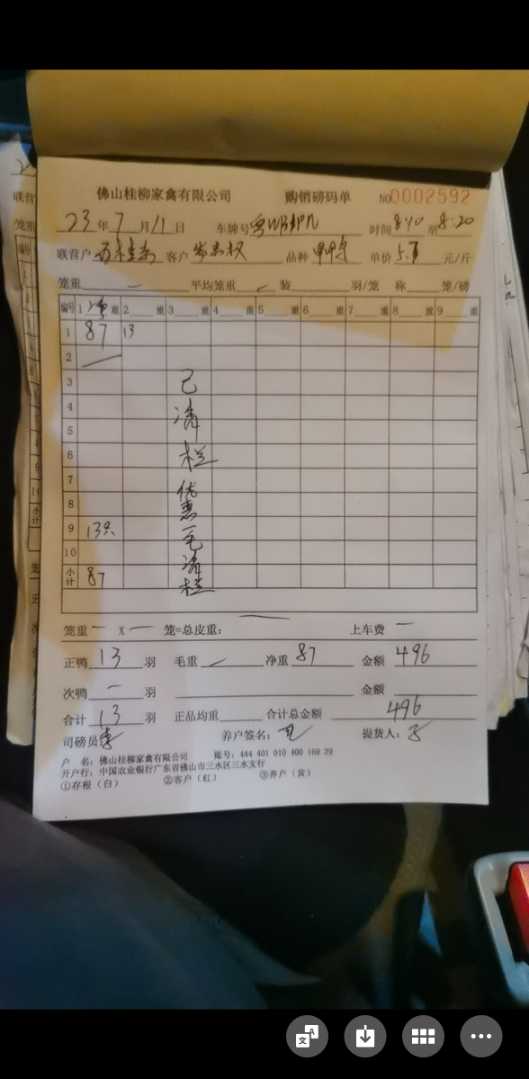 佛山桂柳家禽有限公司 购销磅码单 NO0002592
23年7月11日 车牌号 时间8:10至8:20
联营户 客户 品种 单价 元/斤
笼重 一 平均笼重 装 羽/笼 称 笼/磅
编号 1 净重 2 重 3 重 4 重 5 重 6 重 7 重 8 重 9 重
1 87 13
2
3 已
4 清
5
6 栏
7
8 优惠
9 13只 一毛
10 清
小计 87 栏
笼重 一 X 一 笼=总皮重: 上车费 一
正鸭 13 羽 毛重 净重 87 金额 496
次鸭 一 羽 金额
合计 13 羽 正品均重 合计总金额 496
司磅员 养户签名: 提货人:
户 名: 佛山桂柳家禽有限公司 账号: 444 401 010 400 169 29
开户行: 中国农业银行广东省佛山市三水区三水支行
①存根(白) ②客户(红) ③养户(黄)